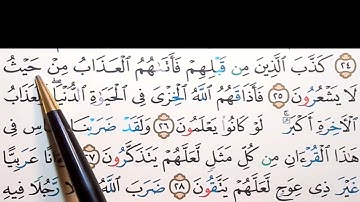 ٢٤ كَذَّبَ ٱلَّذِينَ مِن قَبْلِهِمْ فَأَتَىٰهُمُ ٱلْعَذَابُ مِنْ حَيْثُ
لَا يَشْعُرُونَ ٢٥ فَأَذَاقَهُمُ ٱللَّهُ ٱلْخِزْىَ فِى ٱلْحَيَوٰةِ ٱلدُّنْيَا
ٱلْآخِرَةِ أَكْبَرُ لَوْ كَانُوا۟ يَعْلَمُونَ ٢٦ وَلَقَدْ ضَرَبْنَا فِى
هَٰذَا ٱلْقُرْءَانِ مِن كُلِّ مَثَلٍ لَّعَلَّهُمْ يَتَذَكَّرُونَ ٢٧ عَرَبِيًّا
غَيْرَ ذِى عِوَجٍ لَّعَلَّهُمْ يَتَّقُونَ ٢٨ ضَرَبَ ٱللَّهُ رَّجُلًا فِيهِ